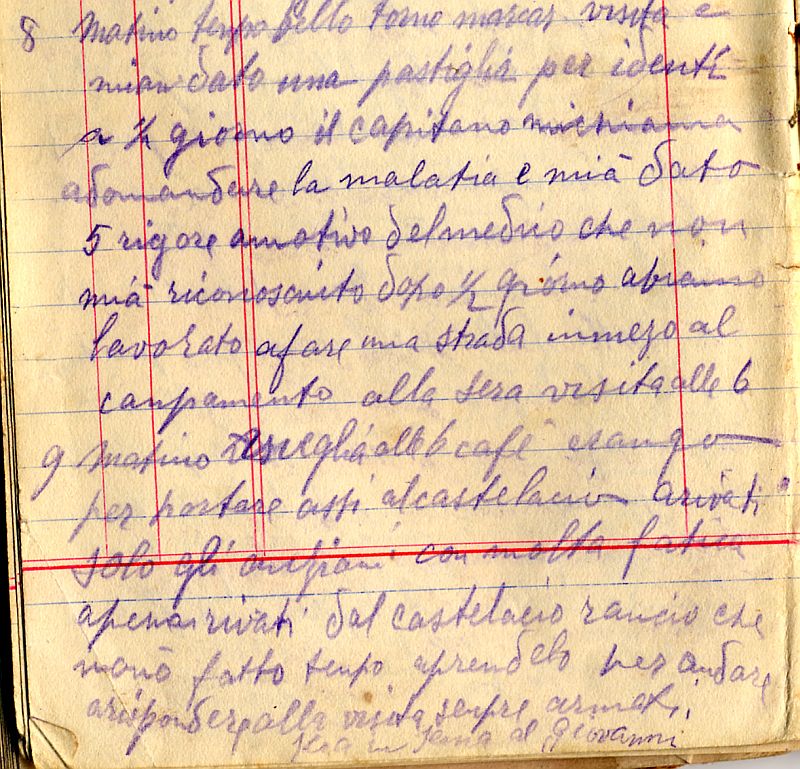 8 Matino tempo bello torno marcar visita e
mian dato una pastiglia per identi
a ½ giorno il capitano michiama
adomandare la malatia e mià dato
5 rigore amotivo delmedico che non
mià riconosciuto dopo ½ giorno abiamo
lavorato afare una strada inmezo al
canpamento alla sera visita alle 6
9 Matino sveglia alle 6 café
per portare assi alcastelacio arivati
solo gli anziani con molta fatica
apena rivati dal castelacio rancio che
nonò fatto tenpo aprendelo per andare
arispondere alla visita senpre armati
al Giovanni